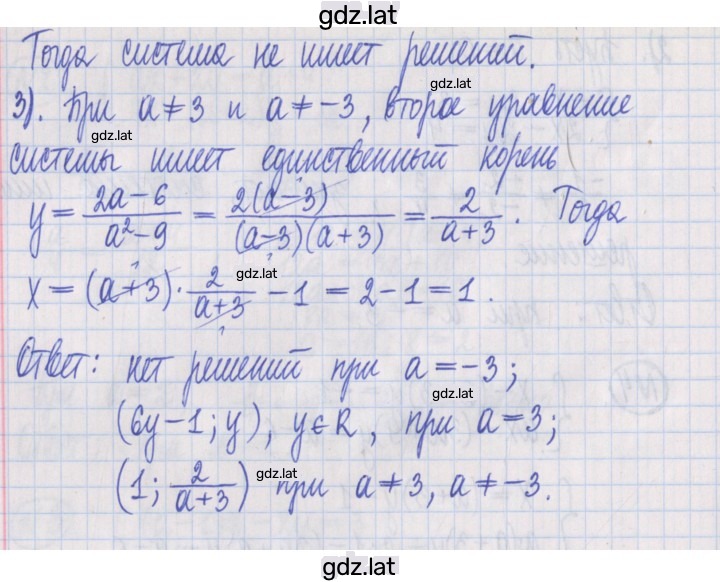 gdz.lat
Тогда система не имеет решений.
gdz.lat
3). При a ≠ 3 и a ≠ -3, второе уравнение
gdz.lat
системы имеет единственный корень
y = \frac{2a-6}{a^2-9} = \frac{2(a-3)}{(a-3)(a+3)} = \frac{2}{a+3}. Тогда
gdz.lat
x = (a+3) · \frac{2}{a+3} - 1 = 2 - 1 = 1.
Ответ: нет решений при a = -3;
gdz.lat
(6y-1; y), y ∈ R, при a = 3;
(1; \frac{2}{a+3}) при a ≠ 3, a ≠ -3.
gdz.lat
gdz.lat